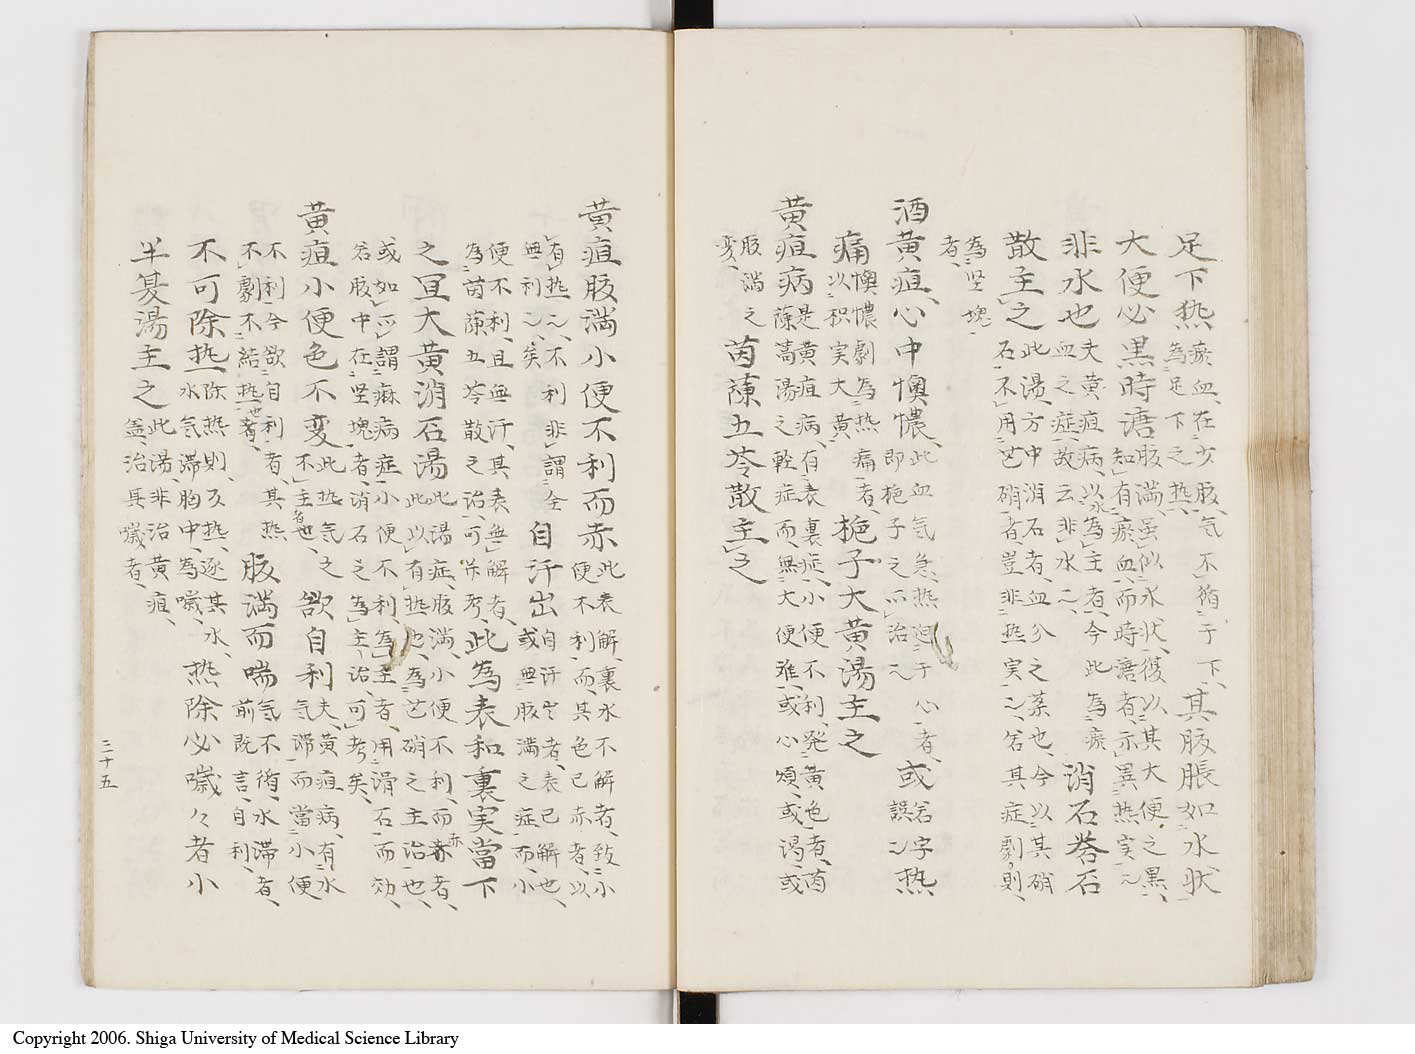 足下热瘀血在少腹、气不循于下、其腹脹如水状
為足下之热、
大便必黒時溏腹満虽似水状、復以其大便之黒、
知有瘀血、而時溏者、示異热実〻
非水也夫黄疸病、以水為主者、今此為瘀
血之症、故云非水〻、消石礬石
散主之此湯、方中消石者、血分之薬也、今以其硝
石、不用芒硝者、豈非热実〻、若其症劇則、
為坚塊
者、
酒黄疸、心中懊憹、此血气急、热迫于心者、或若字
即梔子之所治〻誤〻热
痛懊憹劇為热痛者、梔子大黄湯主之
以积実大黄、
黄疸病是黄疸病、有表裏症、小便不利、発黄色者、茵
蔯蒿湯之軽症而、無大便难、或心煩、或渇、或
腹満之茵蔯五苓散主之
変、
黄疸腹満小便不利而赤此表解、裏水不解者、致小
便不利、而其色已赤者、以
有热〻、不利非謂全自汗出自汗出者、表已解也、
無利〻矣或無腹満之症而、小
便不利、且無汗、其表無解者、此為表和裏実當下
為茵蔯五苓散之治、可并考、
之宜大黄消石湯此湯症、腹満、小便不利、而赤者、
此以有热也、為芒硝之主治也、
或如所謂麻病症、小便不利、為主者、用滑石而効、
若腹、中在坚塊、者、消石之為主、治、可考矣、
黄疸小便色不変此热气之欲自利夫黄疸病、有水
不主者也、气滞而當小便
不利今欲自利者、其热腹満而喘气不循、水滞者、
不劇不結热也者、前既言、自利、
不可除热除热則、仄热、逐其水、热除必噦々者小
水气滞胸中、為噦、
半夏湯主之此湯、非治黄疽、
盖、治其噦者、
三十五
Copyright 2006. Shiga University of Medical Science Library